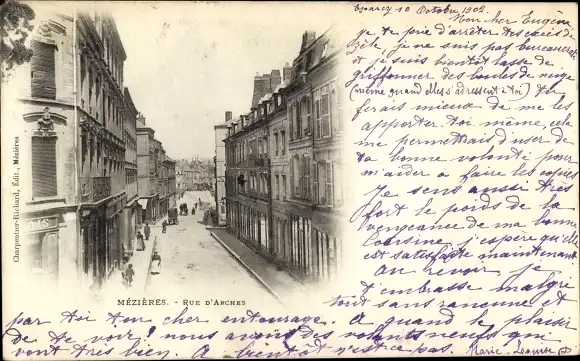 Charpentier-Richard, Édit., Mézières
MÉZIÈRES. - RUE D'ARCHES
10 Octobre 1902
Mon cher Eugène
je te prie d'arrêter tes excès de
zèle, je ne suis pas bureaucrate
et je suis bientôt lasse de
griffonner des boules de neige
(même quand elles s'adressent à toi) Tu
ferais mieux de me les
apporter toi même, cela
me permettrais d'user de
ta bonne volonté pour
m'aider à faire les copies
Je sens aussi très
fort le poids de la
vengeance de ma bonne
cousine, j'espère qu'elle
est satisfaite maintenant
Au revoir, je
t'embrasse malgré
tout sans rancune et
par toi ton cher entourage. A quand le plaisir
de te voir? nous avons des volants neufs qui
vont très bien, A bientôt n'est-ce pas.
Marie